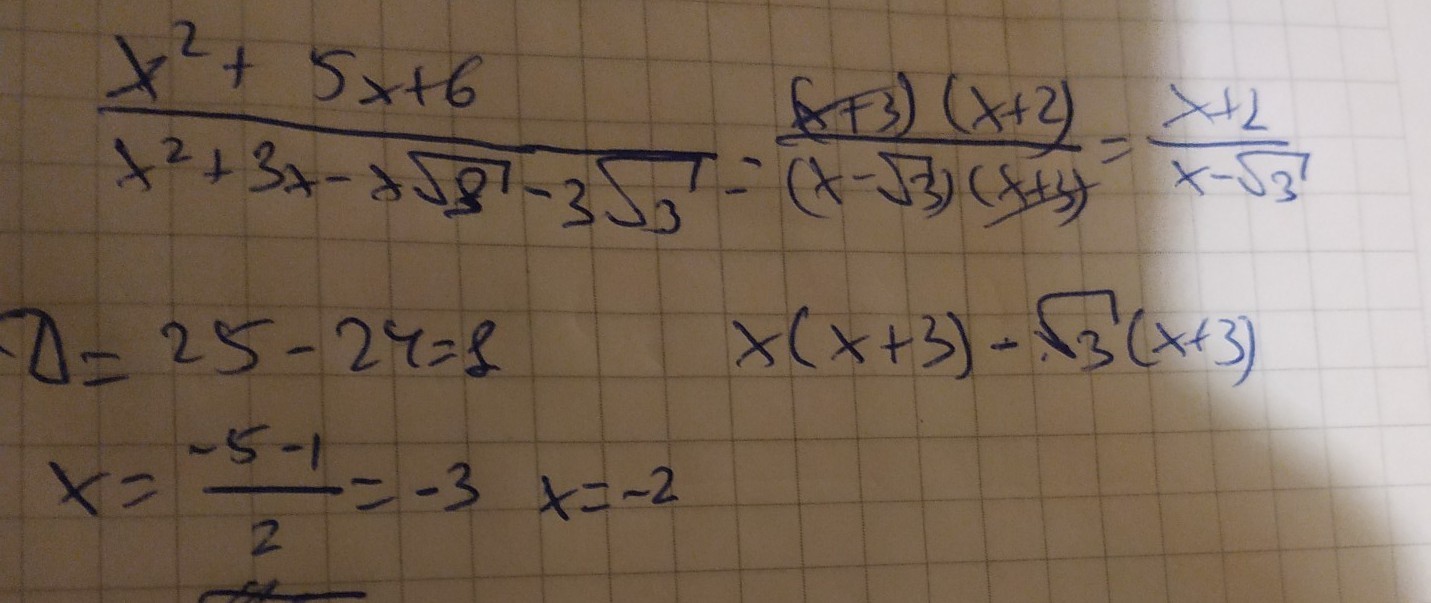 x² + 5x+6 / x² + 3x - x√3 - 3√3 = (x+3)(x+2) / (x-√3)(x+3) = x+2 / x-√3
D = 25 - 24 = 1
x(x+3) - √3(x+3)
x = -5-1 / 2 = -3 x = -2